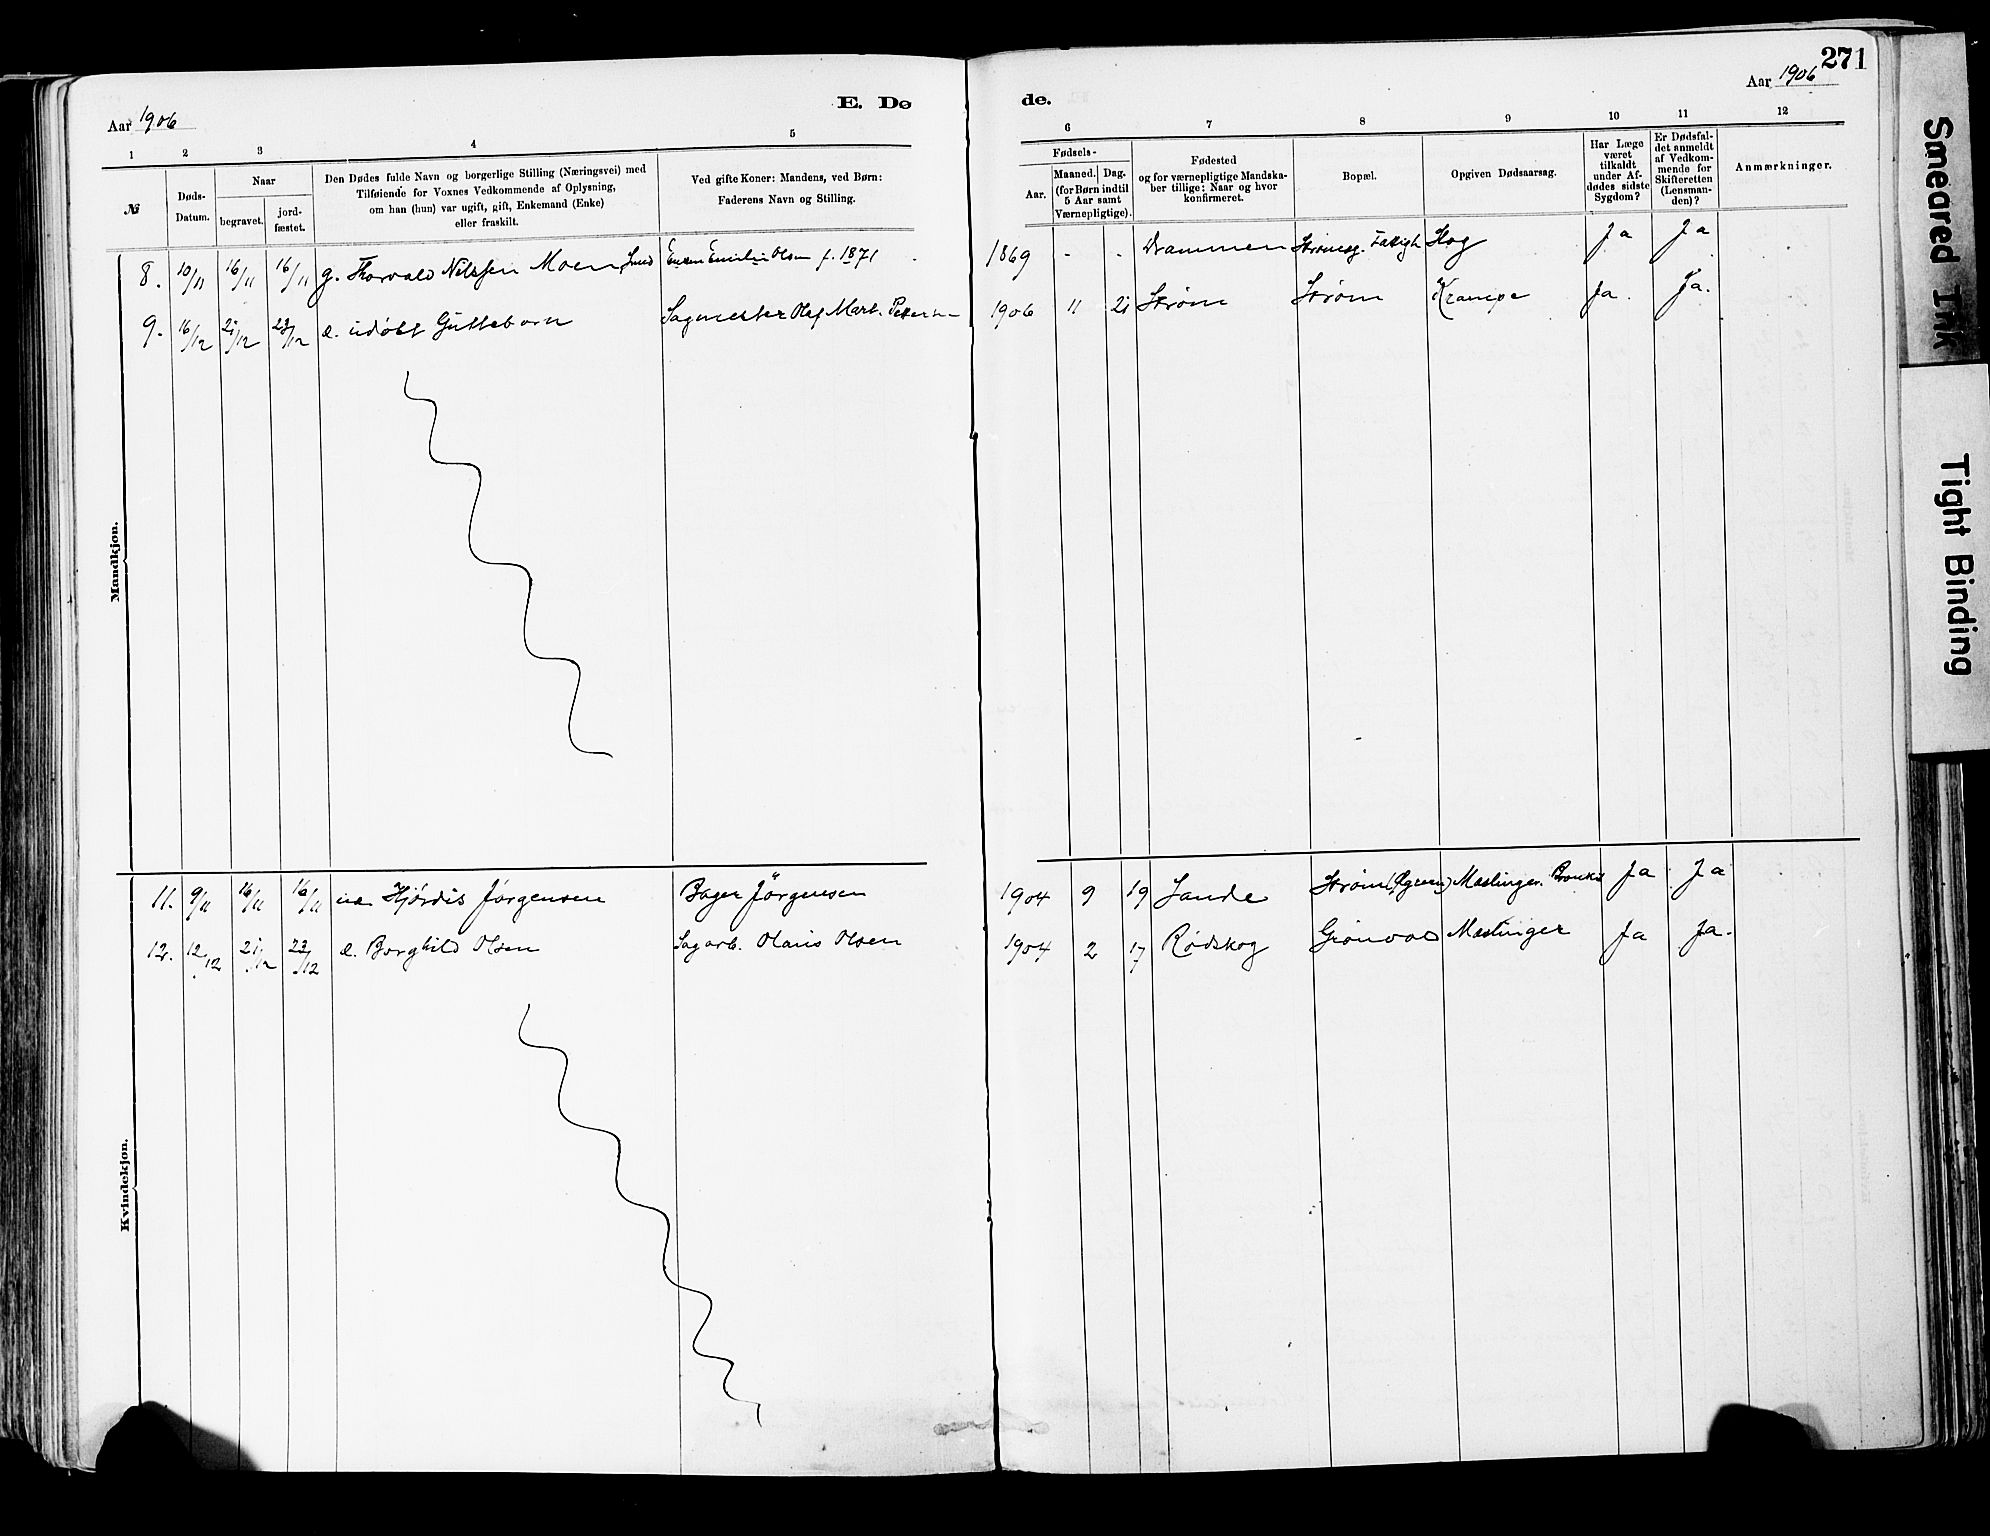 271
Aar 1906
E. Dø
de.
Aar 1906
1 2 3 4 5 6 7 8 9 10 11 12
№
Døds-
Datum.
Naar
begravet.
jord-
fæstet.
Den Dødes fulde Navn og borgerlige Stilling (Næringsvei) med
Tilføiende for Voxnes Vedkommende af Oplysning,
om han (hun) var ugift, gift, Enkemand (Enke)
eller fraskilt.
Ved gifte Koner: Mandens, ved Børn:
Faderens Navn og Stilling.
Fødsels-
Aar.
Maaned. Dag.
(for Børn indtil
5 Aar samt
Værnepligtige).
Fødested
og for værnepligtige Mandska-
ber tillige: Naar og hvor
konfirmeret.
Bopæl.
Opgiven Dødsaarsag.
Har Læge
været
tilkaldt
under Af-
dødes sidste
Sygdom?
Er Dødsfal-
det anmeldt
af Vedkom-
mende for
Skifteretten
(Lensman-
den)?
Anmærkninger.
Mandkjøn.
8. 10/11 16/11 16/11 g. Thorvald Nilssen Moen, Smed Emilie Olsen f. 1871 1869 - - Drammen Ja Ja
9. 16/12 21/12 23/12 e. udøbt Guttebarn Sagmester Olaf Mart. Petersen 1906 11 21 Strøm Strøm Krampe Ja. Ja.
Kvindekjøn.
11. 9/11 16/11 16/11 ue Hjørdis Jörgensen Bager Jörgensen 1904 9 19 Sande Strøm Mæslinger. Ja Ja
12. 12/12 21/12 23/12 e. Borghild Olsen Sagarb. Olaus Olsen 1904 2 17 Rødskog Grønvold Mæslinger Ja Ja.
Smeared Ink
Tight Binding